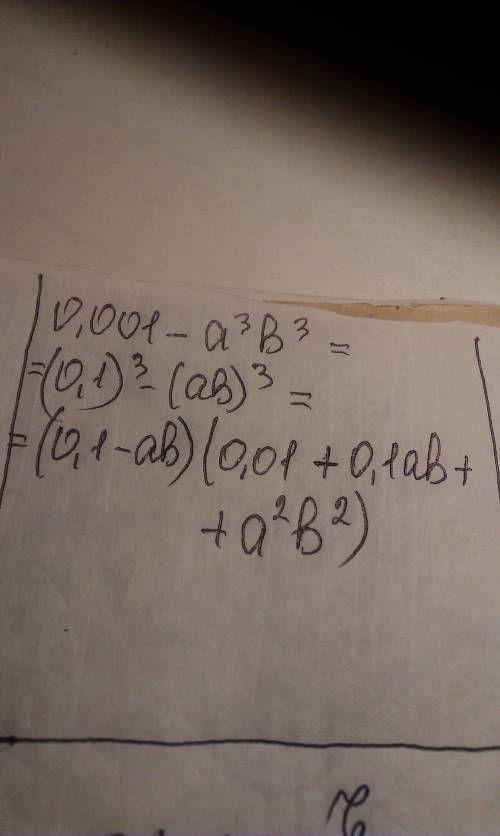 0,001 - a³b³ =
=(0,1)³ - (ab)³ =
=(0,1-ab)(0,01 + 0,1ab +
+ a²b²)